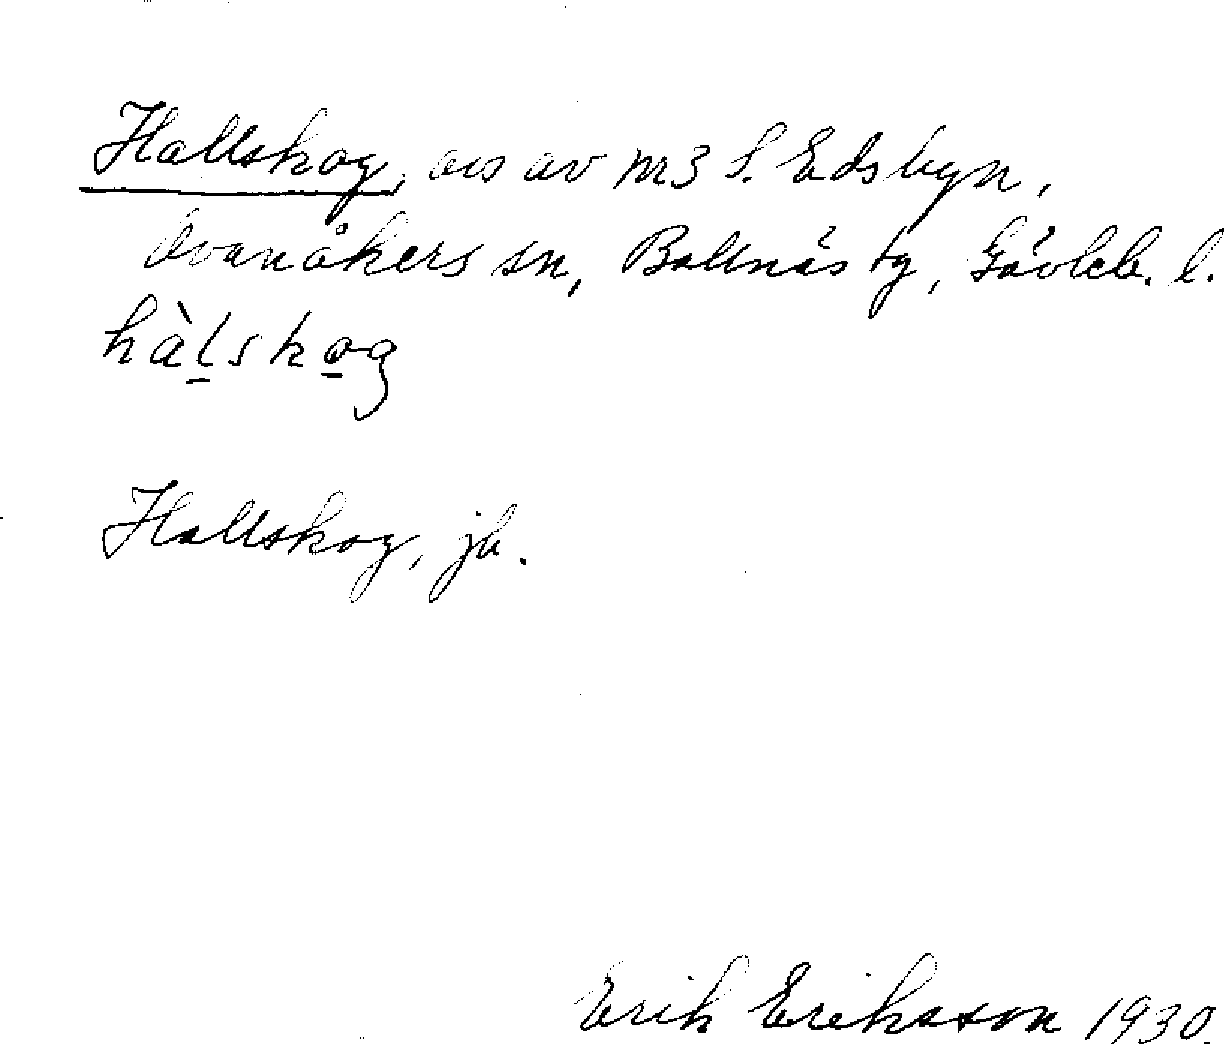 Hallskog, avs av nr 3 S. Edsbyn,
Ovanåkers sn, Bollnäs tg, Gävleb. l.
hàl̠sko̠g
Hallskog, jb.
Erik Eriksson 1930.